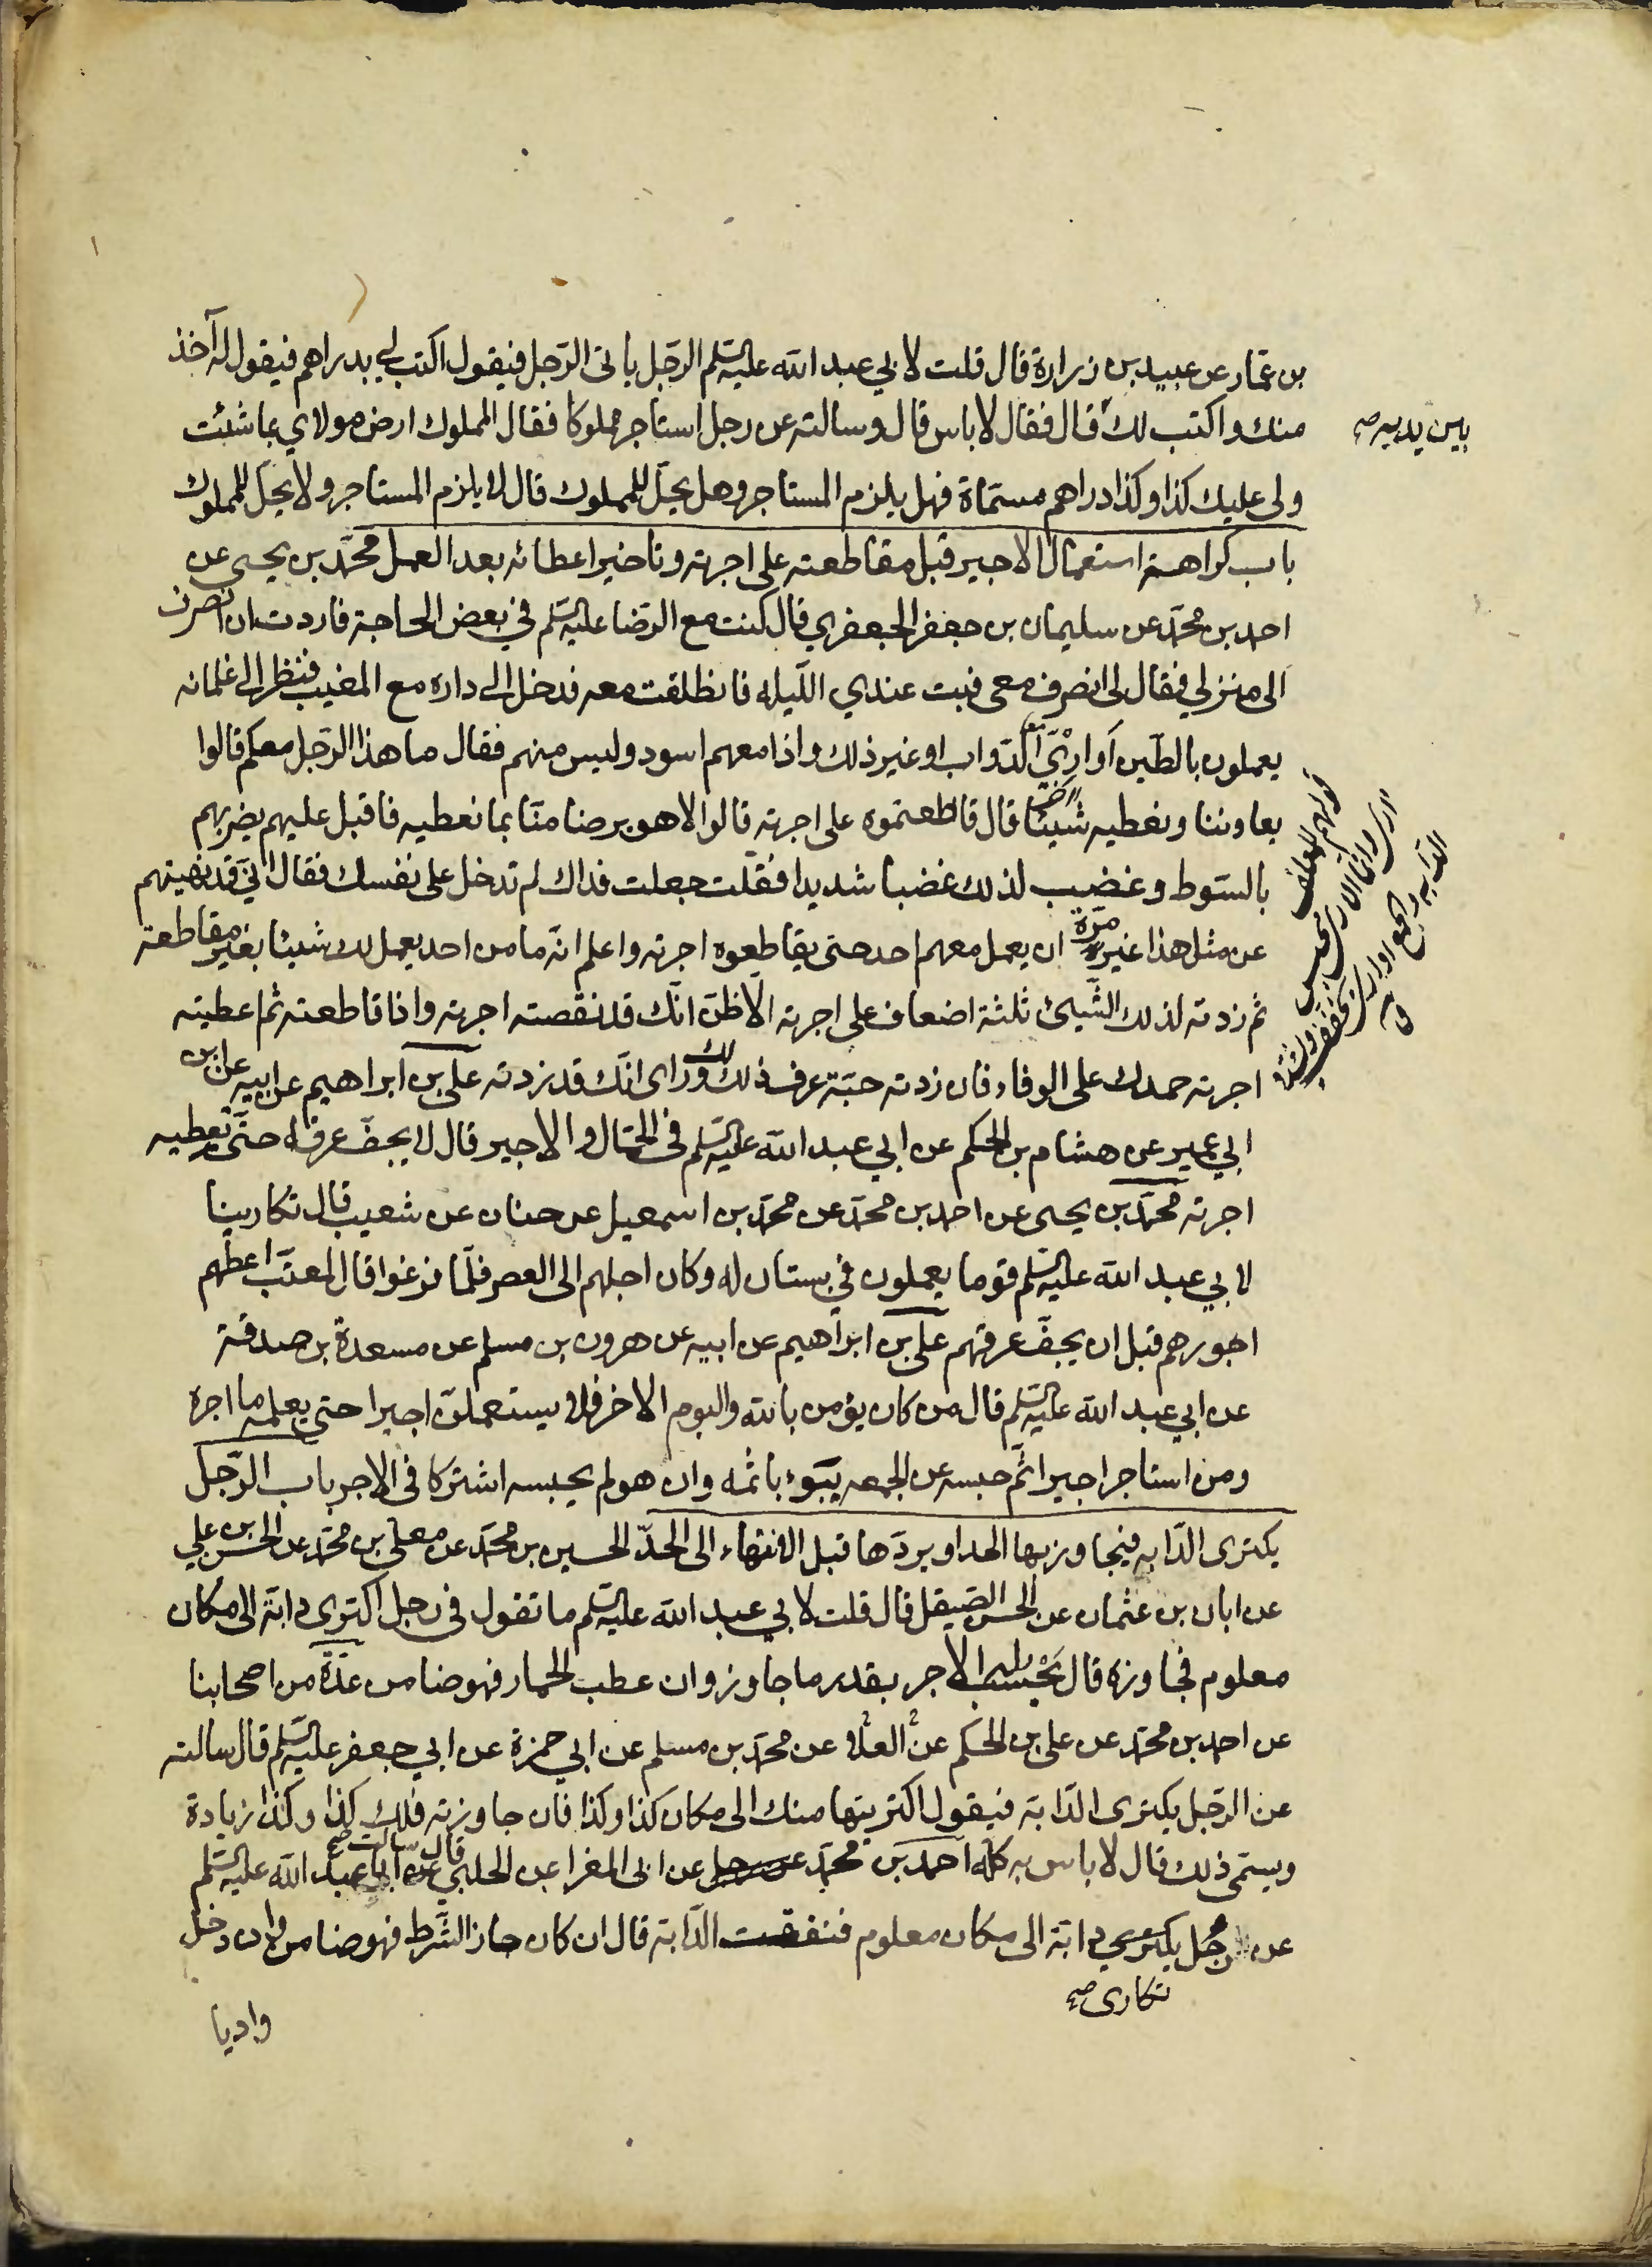 بن عمار عن عبيد بن زرارة قال قلت لابي عبد الله عليه السلم الرجل ياتى الرجل فيقول اكتب لي بدراهم فيقول له آخذ
منك واكتب لك قال فقال لا باس قال وسالته عن رجل استاجر مملوكا فقال المملوك ارض مولاي بما شئت
بين يديه صح
ولى عليك كذا وكذا دراهم مسماة فهل يلزم المستاجر وهل يحل للمملوك قال لا يلزم المستاجر ولا يحل للمملوك
باب كراهية استعمال الاجير قبل مقاطعته على اجرته وتاخير اعطائه بعد العمل محمد بن يحيى عن
احمد بن محمد عن سليمان بن جعفر الجعفري قال كنت مع الرضا عليه السلم في بعض الحاجة فاردت ان انصرف
الى منزلي فقال لى انصرف معى فبت عندي الليله فانطلقت معه فدخل الى داره مع المغيب فنظر الى غلمانه
يعملون بالطين اَوارِيَّ الدواب او غير ذلك واذا معهم اسود وليس منهم فقال ما هذا الرجل معكم قالوا
يعاوننا ونعطيه شيئا قال قاطعتموه على اجرته قالوا لا هو يرضا منا بما نعطيه فاقبل عليهم يضربهم
بالسوط وغضب لذلك غضبا شديدا فقلت جعلت فداك لم تدخل على نفسك فقال انى قد نهيتهم
عن مثل هذا غير مرة ان يعمل معهم احد حتى يقاطعوه اجرته واعلم انه ما من احد يعمل لك شيئا بغير مقاطعة
ثم زدته لذلك الشيئ ثلثة اضعاف على اجرته الا ظن انك قد نقصته اجرته واذا قاطعته ثم اعطيته
اجرته حمدك على الوفاء فان زدته حبة عرف ذلك لك وراى انك قد زدته على بن ابراهيم عن ابيه عن ابن
ابي عمير عن هشام بن الحكم عن ابي عبد الله عليه السلم فى الحمال والاجير قال لا يجف عرقه حتى تعطيه
اجرته محمد بن يحيى عن احمد بن محمد عن محمد بن اسمعيل عن حنان عن شعيب قال تكارينا
لابي عبد الله عليه السلم قوما يعملون في بستان له وكان اجلهم الى العصر فلما فرغوا قال لمعتب اعطهم
اجورهم قبل ان يجف عرقهم على بن ابراهيم عن ابيه عن هرون بن مسلم عن مسعدة بن صدقة
عن ابي عبد الله عليه السلم قال من كان يؤمن بالله واليوم الاخر فلا يستعملن اجيرا حتى يعلمه ما اجره
ومن استاجر اجيرا ثم حبسه عن الجمعه يبوء باثمه وان هو لم يحبسه اشتركا فى الاجر باب الرجل
يكترى الدابه فيجاوز بها الحد او يردها قبل الانتهاء الى الحد الحسين بن محمد عن معلى بن محمد عن الحسن بن علي
عن ابان بن عثمان عن الحسن الصيقل قال قلت لابي عبد الله عليه السلم ما تقول فى رجل اكترى دابة الى مكان
معلوم فجاوزه قال يحسب له الاجر بقدر ما جاوز وان عطب الحمار فهو ضامن عدة من اصحابنا
عن احمد بن محمد عن على بن الحكم عن العلا عن محمد بن مسلم عن ابي حمزة عن ابي جعفر عليه السلم قال سالته
عن الرجل يكترى الدابة فيقول اكتريتها منك الى مكان كذا وكذا فان جاوزته فلك كذا وكذا زيادة
ويسمى ذلك قال لا باس به كله احمد بن محمد عن رجل عن ابى المغرا عن الحلبي قال سالت ابا عبد الله عليه السلم
عن رجل يكتري دابة الى مكان معلوم فنفقت الدابة قال ان كان جاز الشرط فهو ضامن وان دخل
تكارى صح
واديا